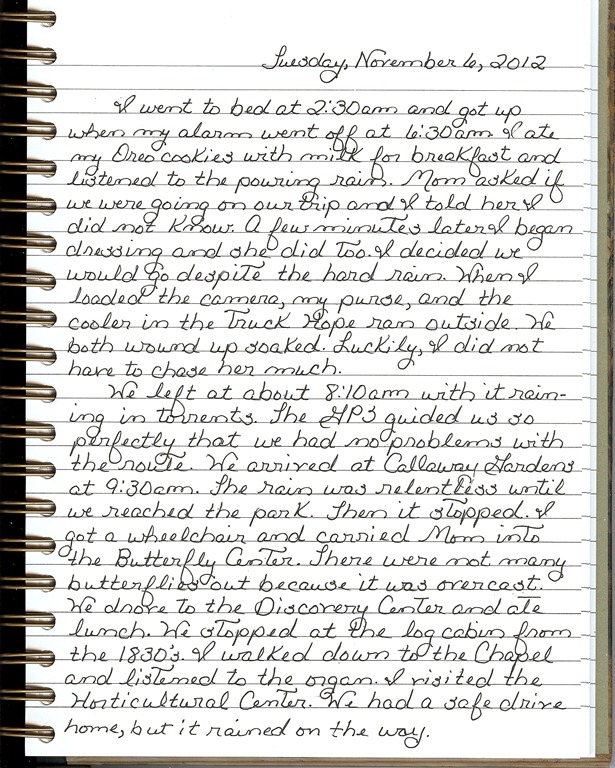 Tuesday, November 6, 2012
I went to bed at 2:30am and got up
when my alarm went off at 6:30am. I ate
my Oreo cookies with milk for breakfast and
listened to the pouring rain. Mom asked if
we were going on our trip and I told her I
did not know. A few minutes later I began
dressing and she did too. I decided we
would go despite the hard rain. When I
loaded the camera, my purse, and the
cooler in the truck Hope ran outside. We
both wound up soaked. Luckily, I did not
have to chase her much.
We left at about 8:10am with it rain-
ing in torrents. The GPS guided us so
perfectly that we had no problems with
the route. We arrived at Callaway Gardens
at 9:30am. The rain was relentless until
we reached the park. Then it stopped. I
got a wheelchair and carried Mom into
the Butterfly Center. There were not many
butterflies out because it was overcast.
We drove to the Discovery Center and ate
lunch. We stopped at the log cabin from
the 1830's. I walked down to the Chapel
and listened to the organ. I visited the
Horticultural Center. We had a safe drive
home, but it rained on the way.